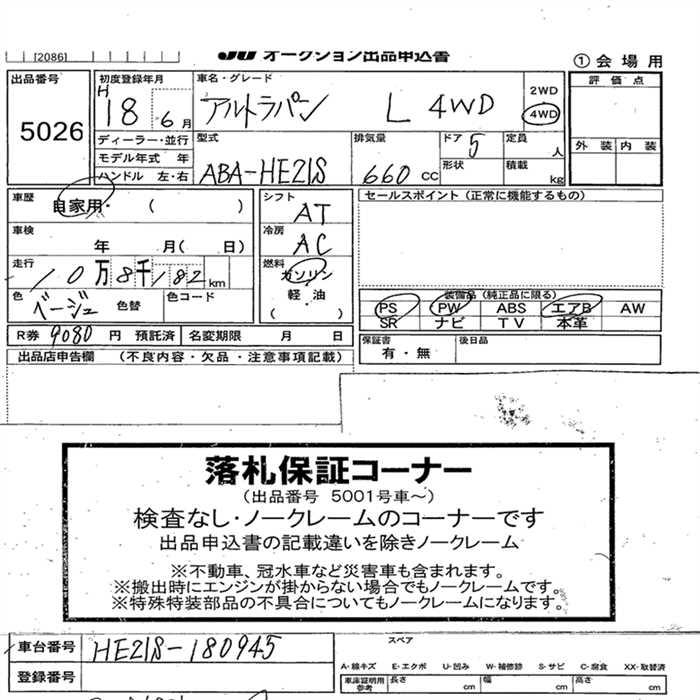 [2086]
JU オークション出品申込書
①会場用
出品番号
5026
初度登録年月
H
18 6月
ディーラー・並行
モデル年式 年
ハンドル 左・右
車名・グレード
アルトラパン L 4WD
2WD
4WD
型式
ABA-HE21S
排気量
660 CC
ドア 5
形状
定員
人
積載
kg
評価点
外装 内装
車歴
自家用・( )
車検
年 月( 日)
走行
10万8千182km
色
ベージュ 色替
色コード
シフト
AT
冷房
AC
燃料
ガソリン
軽・油
( )
セールスポイント (正常に機能するもの)
装備品(純正品に限る)
PS PW ABS エアB AW
SR ナビ TV 本革
R券 9080 円 預託済
名変期限 月 日
保証書
有・無
後日品
出品店申告欄 (不良内容・欠品・注意事項記載)
落札保証コーナー
(出品番号 5001号車～)
検査なし・ノークレームのコーナーです
出品申込書の記載違いを除きノークレーム
※不動車、冠水車など災害車も含まれます。
※搬出時にエンジンが掛からない場合でもノークレームです。
※特殊特装部品の不具合についてもノークレームになります。
車台番号
HE21S-180945
登録番号
スペア
A-線キズ E-エクボ U-凹み W-補修跡 S-サビ C-腐食 XX-取替済
車庫証明用
参考
長さ cm
幅 cm
高さ cm